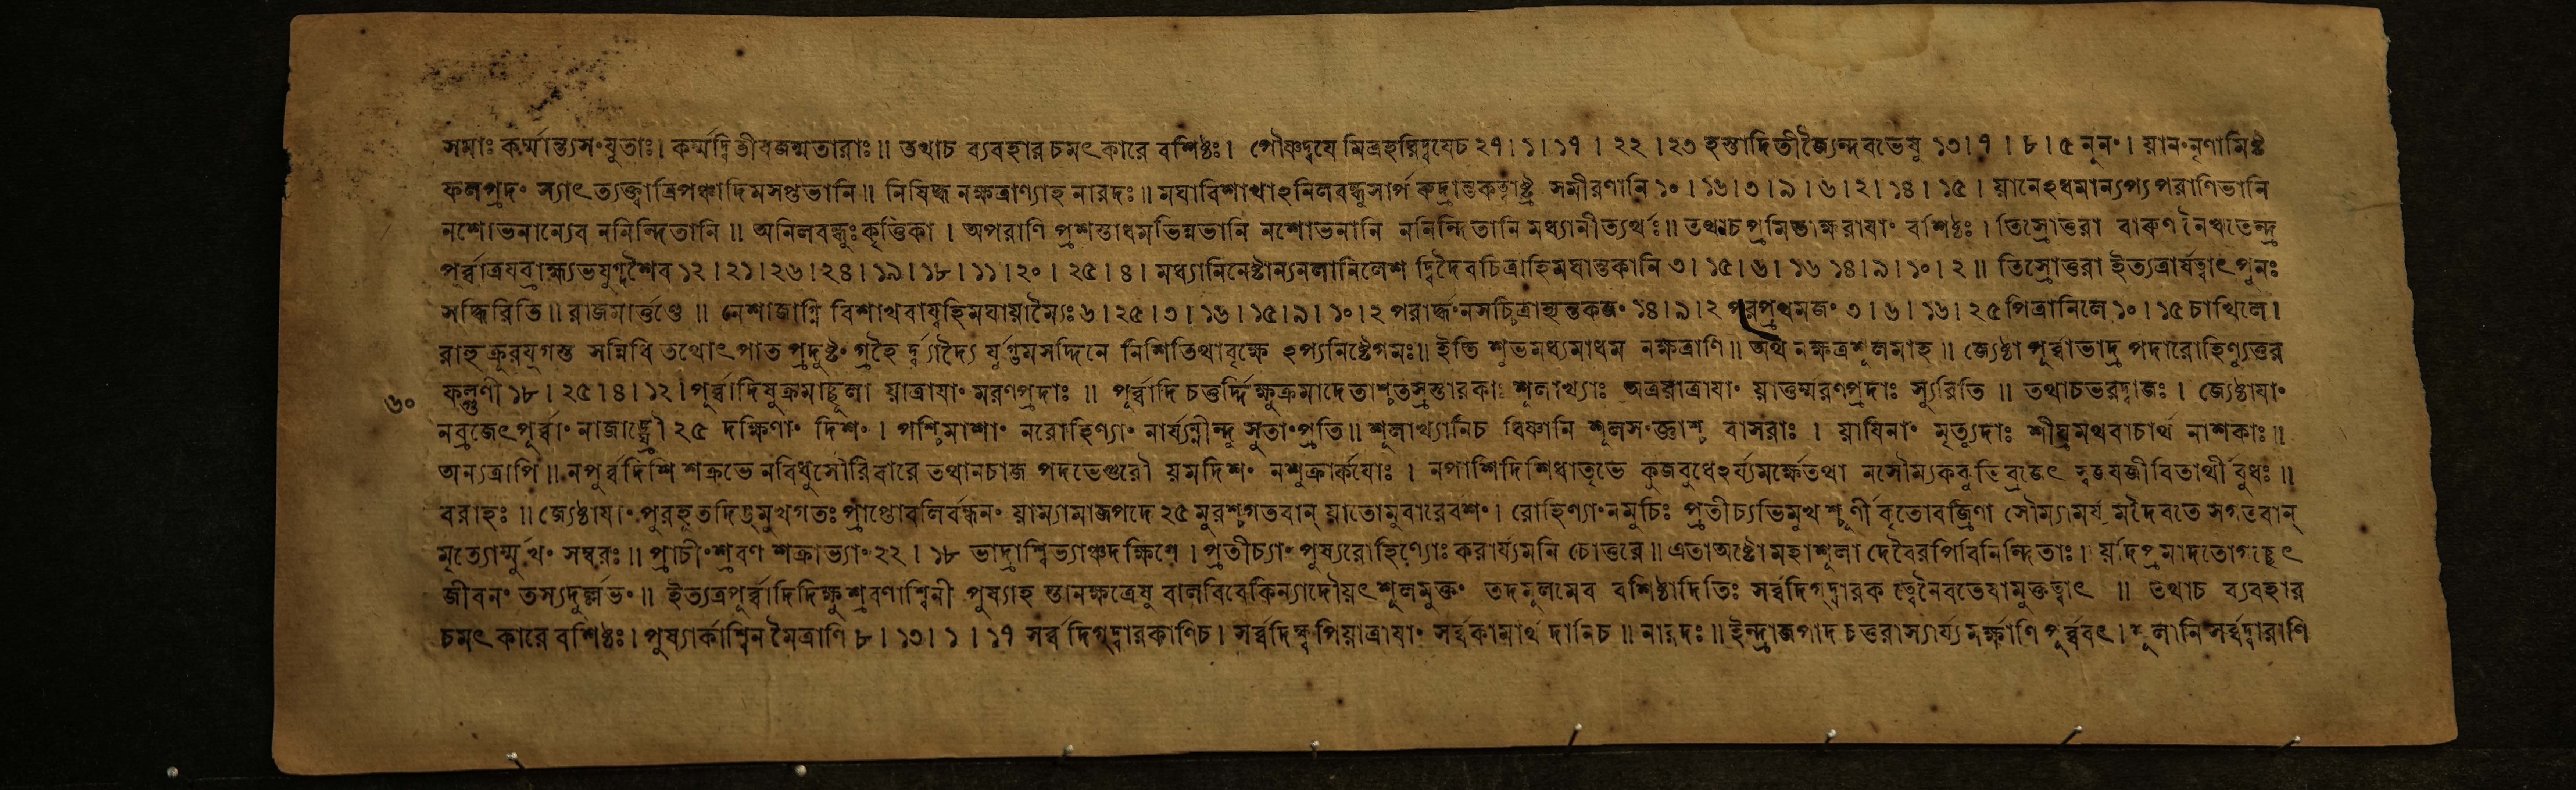 সমাঃ কর্ম্মান্ত্যসংযুতাঃ। কর্ম্মদ্বিতীযজন্মতারাঃ॥ তথাচ ব্যবহার চমৎকারে বশিষ্ঠঃ। পৌষ্ণদ্বযে মিত্রহরিদ্বযেচ ২৭।১।১৭।২২।২৩ হস্তাদিতীজ্যৈন্দবভেষু ১৩।৭।৮।৫ নূনং। য়ানংনৃণামিষ্ট
ফলপ্রদং স্যাৎ ত্যক্ত্বাত্রিপঞ্চাদিমসপ্তভানি॥ নিষিদ্ধ নক্ষত্রাণ্যাহ নারদঃ॥ মঘাবিশাখাঽনিলবন্ধুসার্প কদ্রান্তকত্বাষ্ট্র সমীরণানি ১০।১৬।৩।৯।৬।২।১৪।১৫। য়ানেঽধমান্যপ্যপরাণিভানি
নশোভনান্যেব ননিন্দিতানি॥ অনিলবন্ধুঃকৃত্তিকা। অপরাণি প্রশস্তাধমভিন্নভানি নশোভনানি ননিন্দিতানি মধ্যানীত্যর্থঃ॥ তথাচপ্রমিতাক্ষরাযাং বশিষ্ঠঃ। তিস্রোত্তরা বারুণ নৈঋতেন্দ্র
পূর্ব্বাত্রযব্রাহ্ম্যভযুগ্মশৈব ১২।২১।২৬।২৪।১৯।১৮।১১।২০।২৫।৪। মধ্যানিনেষ্টান্যনলানিলেশ দ্বিদৈবচিত্রাহিমঘান্তকানি ৩।১৫।৬।১৬ ১৪।৯।১০।২॥ তিস্রোত্তরা ইত্যত্রার্ষত্বাৎপুনঃ
সন্ধিরিতি॥ রাজমার্ত্তণ্ডে॥ নেশাজাগ্নি বিশাখবায্বহিমঘায়াম্যৈঃ ৬।২৫।৩।১৬।১৫।৯।১০।২ পরার্দ্ধংনসচিত্রাহ্যন্তকজং ১৪।৯।২ পরপ্রথমজং ৩।৬।১৬।২৫ পিত্রানিলে ১০।১৫ চাখিলে।
রাহু ক্রূরযুগস্ত সন্নিধি তথোৎপাত প্রদুষ্টং গ্রহৈ যুগ্মমসদ্দিনে নিশিতিথাবৃক্ষে ঽপ্যনিষ্টেগমঃ॥ ইতি শুভমধ্যমাধম নক্ষত্রাণি॥ অথ নক্ষত্রশূলমাহ॥ জ্যেষ্ঠা পূর্ব্বাভাদ্র পদারোহিণ্যুত্তর
৬০ ফল্গুণী ১৮।২৫।৪।১২। পূর্ব্বাদিষুক্রমাচ্ছূলা য়াত্রাযাং মরণপ্রদাঃ॥ পূর্ব্বাদি চতুর্দ্দিক্ষুক্রমাদেতাশ্চতস্রস্তারকাঃ শূলাখ্যাঃ অত্রয়াত্রাযাং য়াতুন্মরণপ্রদাঃ স্যুরিতি॥ তথাচভরদ্বাজঃ। জ্যেষ্ঠাযাং
নব্রজেৎপূর্ব্বাং নাজাঙ্ঘ্রৌ ২৫ দক্ষিণাং দিশং। পশ্চিমাশাং নরোহিণ্যাং নার্য্যম্নীন্দু সুতাংপ্রতি॥ শূলাখ্যানিচ ধিষ্ণানি শূলসংজ্ঞাশ্চ বাসরাঃ। য়াযিনাং মৃত্যুদাঃ শীঘ্রমথবাচার্থ নাশকাঃ॥
অন্যত্রাপি॥ নপূর্ব্বদিশি শক্রভে নবিধুসৌরিবারে তথানচাজ পদভেগুরৌ যমদিশং নশুক্রার্কযোঃ। নপাশিদিশিধাতৃভে কুজবুধেঽর্য্যমর্ক্ষেতথা নসৌম্যককুভি ব্রজেৎ জীবিতার্থী বুধঃ॥
বরাহঃ॥ জ্যেষ্ঠাযাং পুরহূতদিঙ্মুখগতঃ প্রাপ্তোবলির্বন্ধনং য়াম্যামাজপদে ২৫ মুরশ্চগতবান্ য়াতোমুরারের্বশং। রোহিণ্যাংনমুচিঃ প্রতীচ্যভিমুখ শ্চূর্ণীকৃতোবজ্রিণা সৌম্যামর্য মদৈবতে সগতবান্
মৃত্যোর্ম্মুখং সম্বরঃ॥ প্রাচীংশ্রবণ শক্রাভ্যাং ২২।১৮ ভাদ্রাশ্বিভ্যাঞ্চদক্ষিণে। প্রতীচ্যাং পুষ্যরোহিণ্যোঃ করার্য্যমনি চোত্তরে॥ এতাঅষ্টৌমহাশূলা দেবৈরপিবিনিন্দিতাঃ। য়দিপ্রমাদতোগচ্ছেৎ
জীবনং তস্যদুর্ল্লভং॥ ইত্যত্রপূর্ব্বাদিদিক্ষুশ্রবণাশ্বিনী পুষ্যাহ স্তানক্ষত্রেষু বালবিবেকিন্যাদৌয়ৎশূলমুক্তং তদমূলমেব বশিষ্ঠাদিতিঃ সর্ব্বদিগ্দ্বারক ত্বেনৈবতেষামুক্তত্বাৎ॥ তথাচ ব্যবহার
চমৎ কারে বশিষ্ঠঃ। পুষ্যার্কাশ্বিন মৈত্রাণি ৮।১৩।১।১৭ সর্ব্ব দিগ্দ্বারকাণিচ। সর্ব্বদিক্ষ্বপিয়াত্রাযাং সর্ব্বকামার্থ দানিচ॥ নারদঃ॥ ইন্দ্রাজপাদ চতুরাস্যার্য্যমর্ক্ষাণি পূর্ব্ববৎ। শূলানি সর্ব্বদ্বারাণি